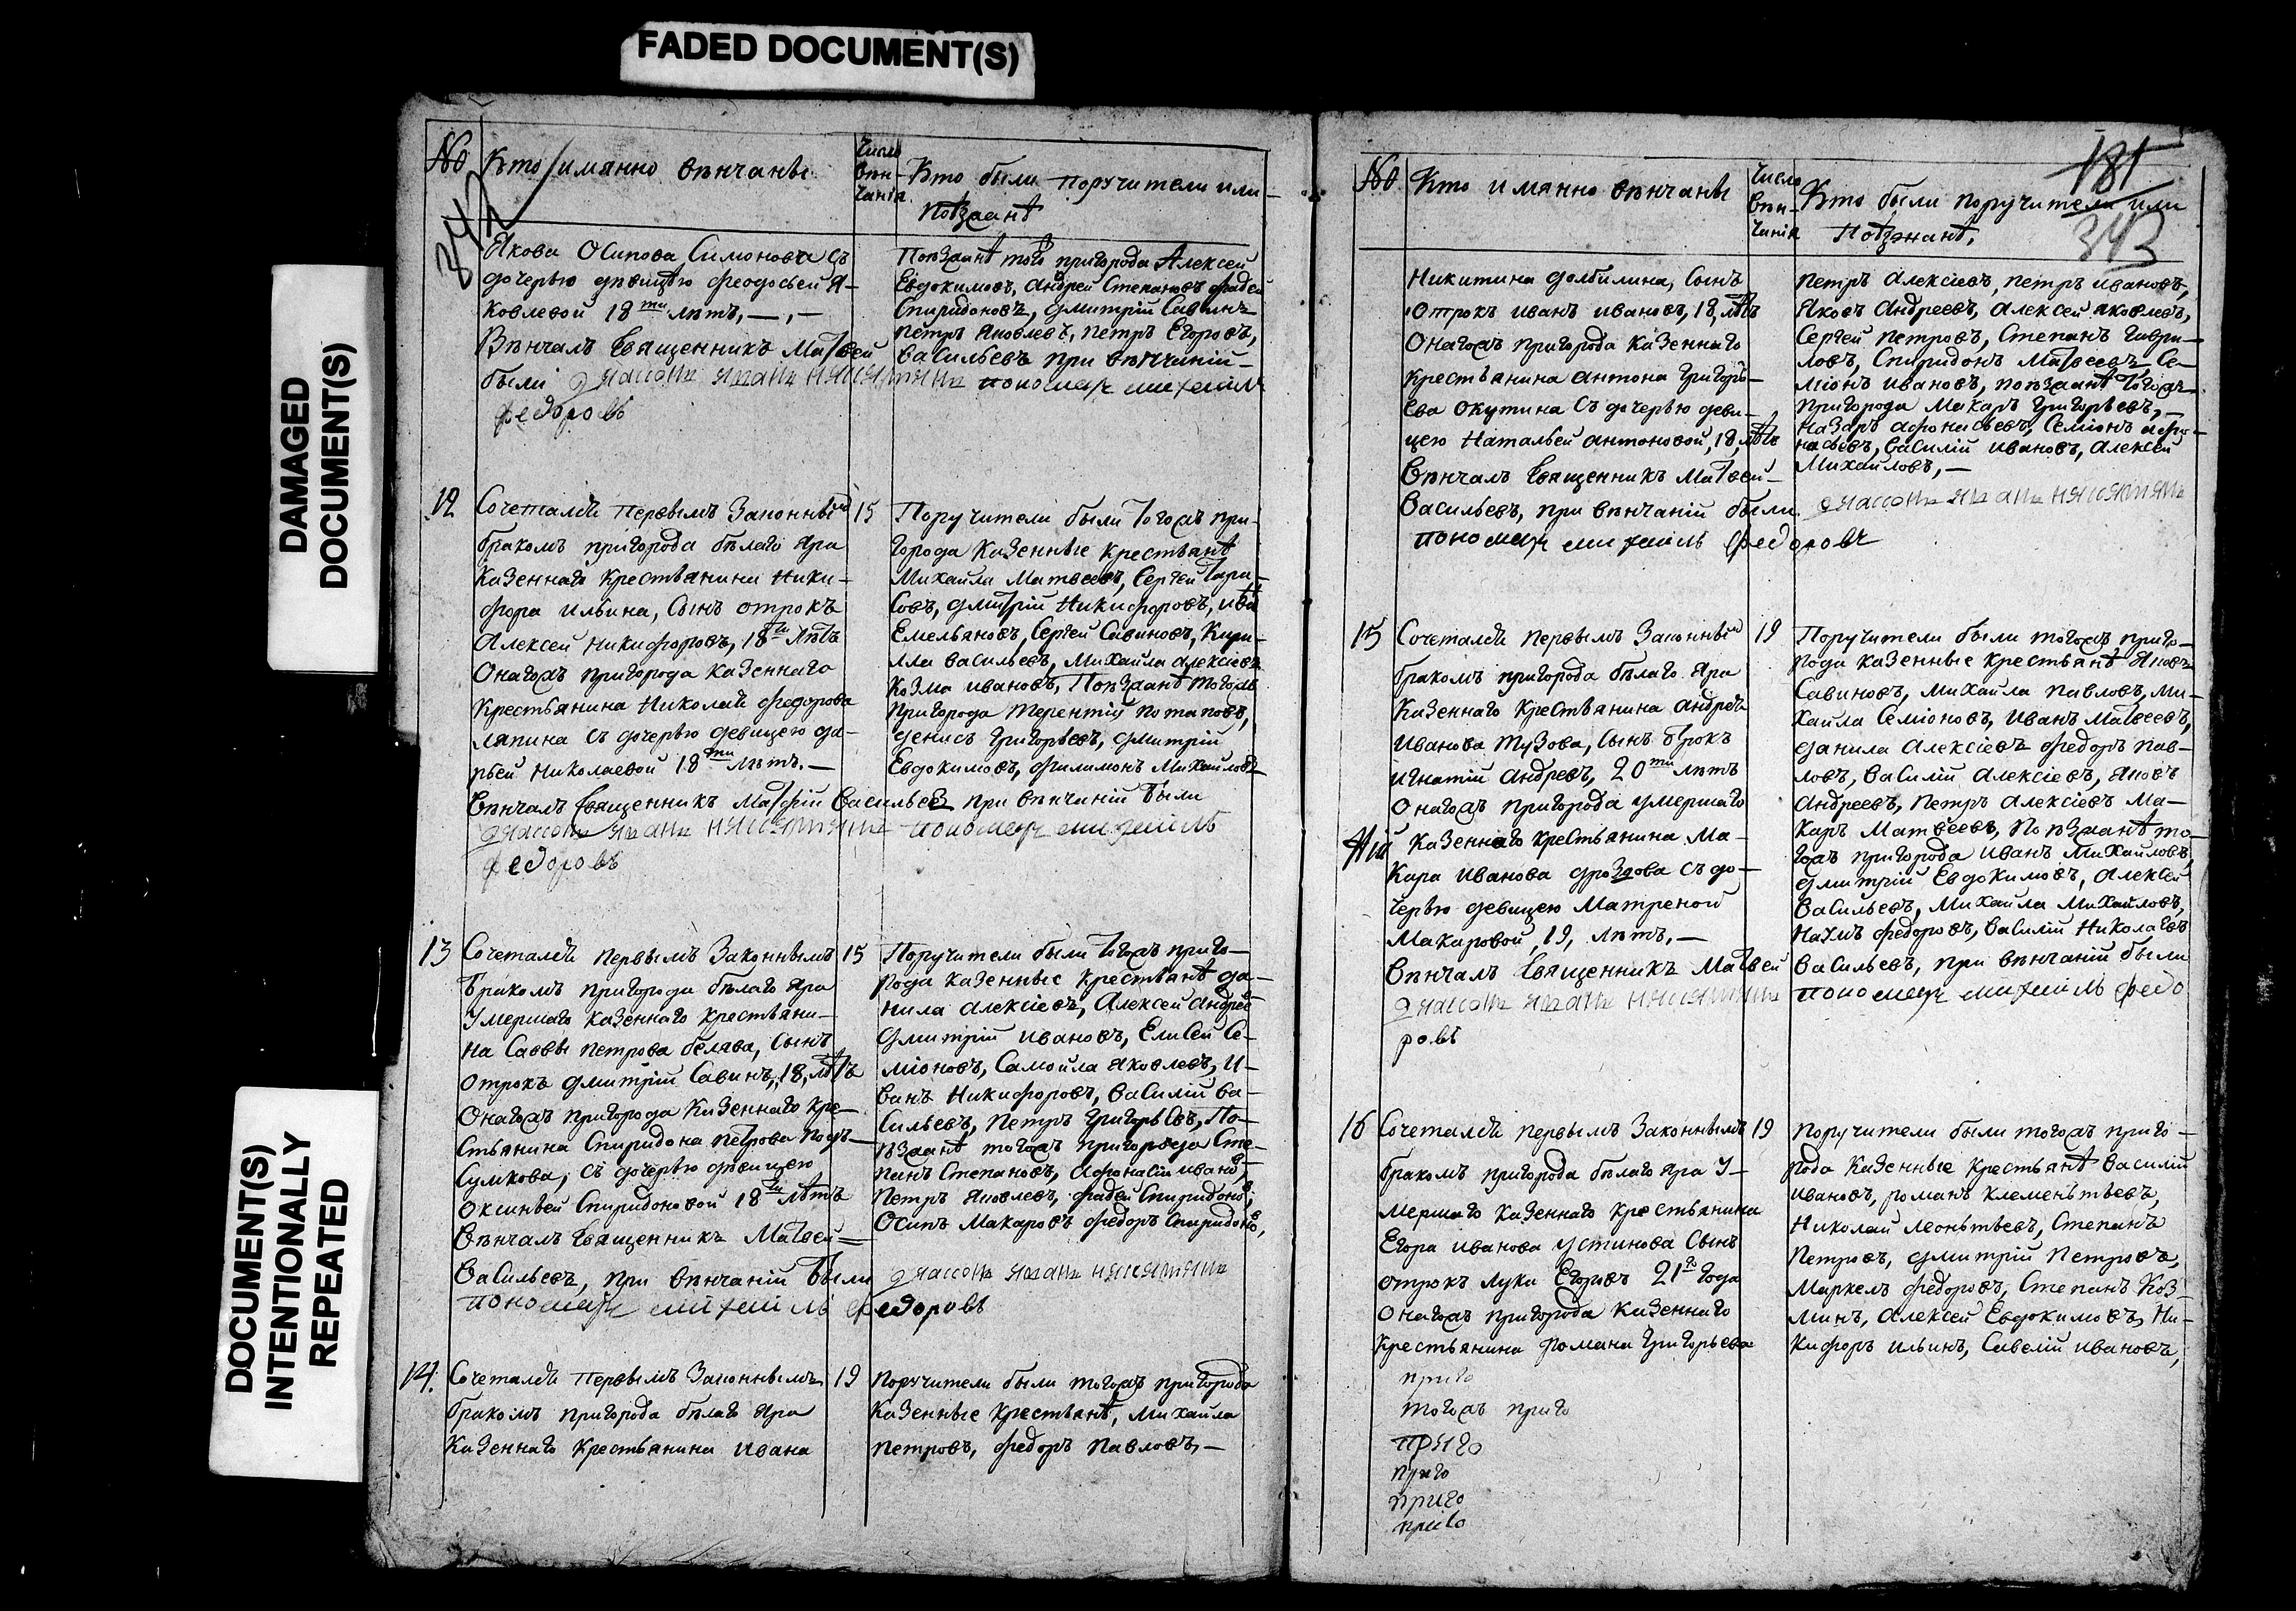 FADED DOCUMENT(S)
DAMAGED
DOCUMENT(S)
DOCUMENT(S)
INTENTIONALLY
REPEATED
342
№
Кто имянно вѣнчаны
Число
вѣн-
чанія
Кто были поручители или
поѣзжанѣ
Якова Осипова Симонова съ
дочерью дѣвицею Феодосьей Я-
ковлевой 18ти лѣтъ, —,—
Вѣнчалъ Священникъ Матвей
были
пономарь михаилъ
федоровъ
Поѣзжанѣ того пригорода Алексей
Евдокимовъ, Андрей Степановъ Фадей
Спиридоновъ, Дмитрій Савинъ
Петръ Яковлевъ, Петръ Егоровъ,
Васильевъ при вѣнчаніи
12
Сочетался первымъ законным
бракомъ пригорода бѣлаго Яра
казеннаго крестьянина Ники-
фора Ильина, сынъ отрокъ
Алексей Никифоровъ, 18ти лѣтъ
Онагожъ пригорода казеннаго
крестьянина Николая Федорова
Ляпина съ дочерью девицею Да-
рьей Николаевой 18ти лѣтъ. —
Вѣнчалъ Священникъ Матфій Васильев при вѣнчаніи были
пономарь михаилъ
федоровъ
15
Поручители были тогожъ при-
города казенные крестьянѣ
Михайла Матвеевъ, Сергей Тара-
совъ, Дмитрій Никифоровъ, Ива
Емельяновъ, Сергей Савиновъ, Кири-
лла Васильевъ, Михайла Алексіевъ
Козма Ивановъ, Поѣзжанѣ тогожъ
пригорода Терентій Потаповъ,
Денисъ Григорьевъ, Дмитрій
Евдокимовъ, Филимонъ Михайловъ
13
Сочетался первымъ законнымъ
бракомъ пригорода бѣлаго Яра
умершаго казеннаго крестьяни-
на Саввы Петрова Белява, сынъ
отрокъ Дмитрій Савинъ, 18, лѣтъ
Онагожъ пригорода казеннаго кре-
стьянина Спиридона Петрова Подъ-
сумкова, съ дочерью дѣвицею
Оксиньей Спиридоновой 18ти лѣтъ
Вѣнчалъ Священникъ Матвей
Васильевъ, при вѣнчаніи были
пономарь михаилъ федоровъ
15
Поручители были тогожъ приго-
рода казенные крестьянѣ Да-
нила Алексіевъ, Алексей Андрее
Дмитрій Ивановъ, Елисей Се-
міоновъ, Самойла Яковлевъ, И-
ванъ Никифоровъ, Василій Ва-
сильевъ, Петръ Григорьевъ, По-
ѣзжанѣ тогожъ пригорода Сте-
панъ Степановъ, Афонасій Ивано,
Петръ Яковлевъ, Фадей Спиридоно,
Осипъ Макаровъ Федоръ Спиридоно,
14.
Сочетался первымъ законнымъ
бракомъ пригорода бѣлаго Яра
казеннаго крестьянина Ивана
19
Поручители были тогожъ пригорода
казенные крестьянѣ, Михайла
Петровъ, Федоръ Павловъ, —
181
343
№
Кто имянно вѣнчаны
Число
вѣн-
чанія
Кто были поручители или
поѣзжанѣ,
Никитина Долбилина, сынъ
отрокъ Иванъ Ивановъ, 18, лѣтъ
Онагожъ пригорода казеннаго
крестьянина Антона Григорь-
ева Окутина съ дочерью деви-
цею Натальей Антоновой, 18, лѣтъ
Вѣнчалъ Священникъ Матвей
Васильевъ, при вѣнчаніи были
пономарь михаилъ федоровъ
Петръ Алексіевъ, Петръ Ивановъ,
Яковъ Андреевъ, Алексей Яковлевъ,
Сергей Петровъ, Степанъ Гаври-
ловъ, Спиридонъ Матвеевъ, Се-
міонъ Ивановъ, поѣзжанѣ тогожъ
пригорода Макаръ Григорьевъ, —
Назаръ Афонасьевъ, Семіонъ Афо-
насьевъ, Василій Ивановъ, Алексей
Михайловъ, —
15
Сочетался первымъ законны
бракомъ пригорода бѣлаго Яра
казеннаго крестьянина Андрея
Иванова Тузова, сынъ отрокъ
Игнатій Андревъ, 20ти лѣтъ
Онагожъ пригорода умершаго
казеннаго крестьянина Ма-
кара Иванова Дроздова съ до-
черью девицею Матреной
Макаровой, 19, лѣтъ, —
Вѣнчалъ Священникъ Матвей Васильевъ, при вѣнчаніи были
пономарь михаилъ федо
ровъ
19
Поручители были тогожъ приго-
рода казенные крестьянѣ Яковъ
Савиновъ, Михайла Павловъ, Ми-
хайла Семіоновъ, Иванъ Матвеевъ,
Данила Алексіевъ Федоръ Пав-
ловъ, Василій Алексіевъ, Яковъ
Андреевъ, Петръ Алексіевъ Ма-
каръ Матвеевъ, Поѣзжанѣ то-
гожъ пригорода Иванъ Михайловъ,
Дмитрій Евдокимовъ, Алексей
Васильевъ, Михайла Михайловъ,
Наумъ Федоровъ, Василій Николаевъ
16
Сочетался первымъ законнымъ
бракомъ пригорода бѣлаго Яра у-
мершаго казеннаго крестьянина
Егора Иванова Устинова сынъ
отрокъ Лука Егоровъ 21го года
Онагожъ пригорода казеннаго
крестьянина Романа Григорьева
приго
тогожъ приго
приго
приго
приго
приго
19
Поручители были тогожъ приго-
рода казенные крестьянѣ Василій
Ивановъ, Романъ Клементьевъ,
Николай Леонтьевъ, Степанъ
Петровъ, Дмитрій Петровъ,
Маркелъ Федоровъ, Степанъ Коз-
минъ, Алексей Евдокимовъ, Ни-
кифоръ Ильинъ, Савелій Ивановъ,